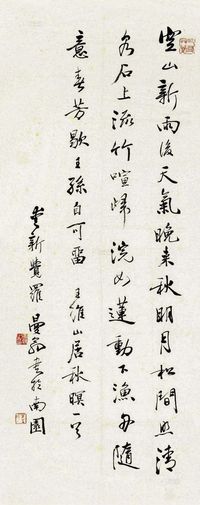 空山新雨後天氣晚來秋明月松間照清
泉石上流竹喧歸浣女蓮動下漁舟隨
意春芳歇王孫自可留 王維山居秋暝一首
愛新覺羅 書於南園